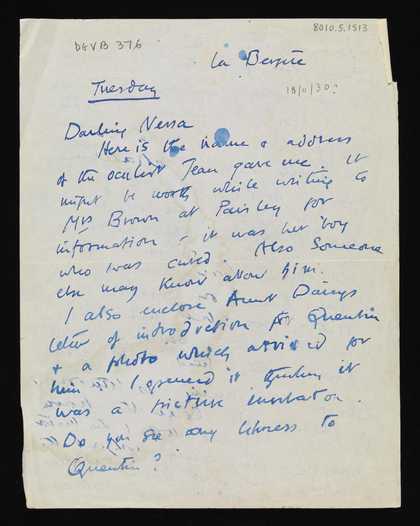 8010.5.1513
DGVB 376
La Bergère
Tuesday
18/11/30?
Darling Nessa
Here is the name & address
of the oculist Jean gave me. It
might be worth while writing to
Mrs Brown at Paisley for
information – it was her boy
who was cured. Also Someone
else may know about him.
I also enclose Aunt Daisy's
letter of introduction for Quentin
& a photo which arrived for
him – I opened it thinking it
was a picture invitation.
Do you see any likeness to
Quentin?